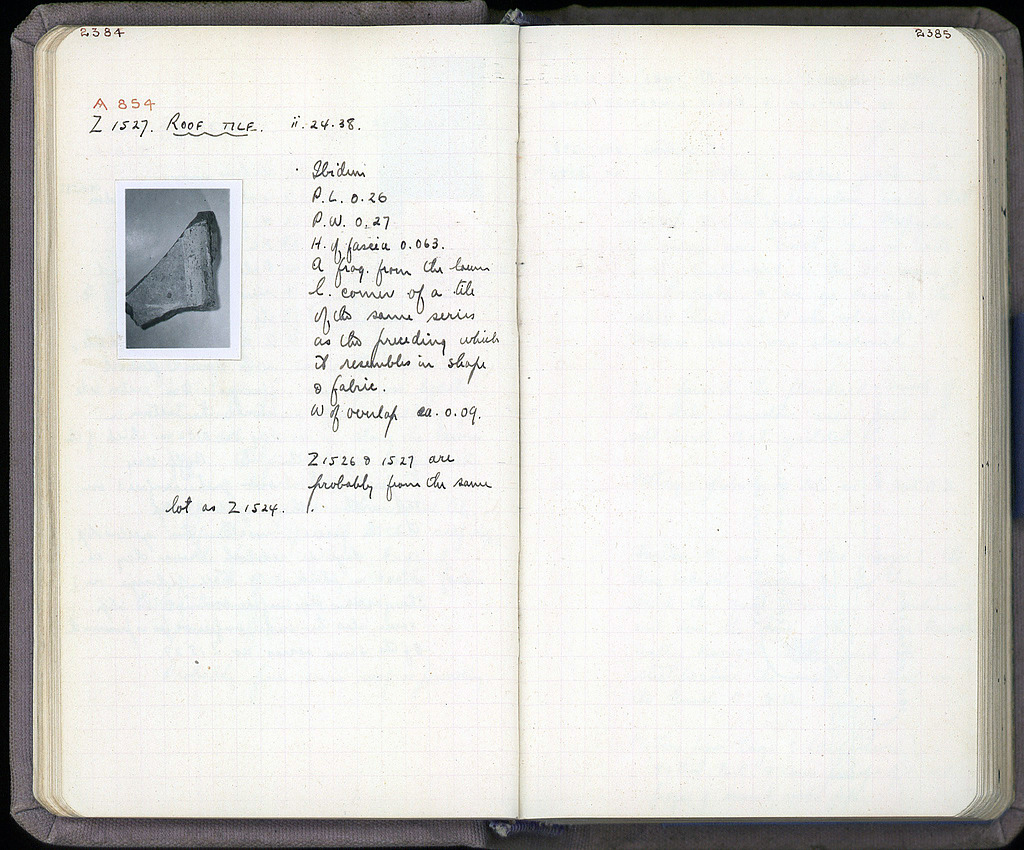 2384
A 854
Z 1527. ROOF TILE. ii.24.38.
Ibidem
P.L. 0.26
P.W. 0.27
H. of fascia 0.063.
A frag. from the lower
l. corner of a tile
of the same series
as the preceding which
it resembles in shape
& fabric.
W of overlap ca. 0.09.
Z 1526 & 1527 are
probably from the same
lot as Z 1524.
2385